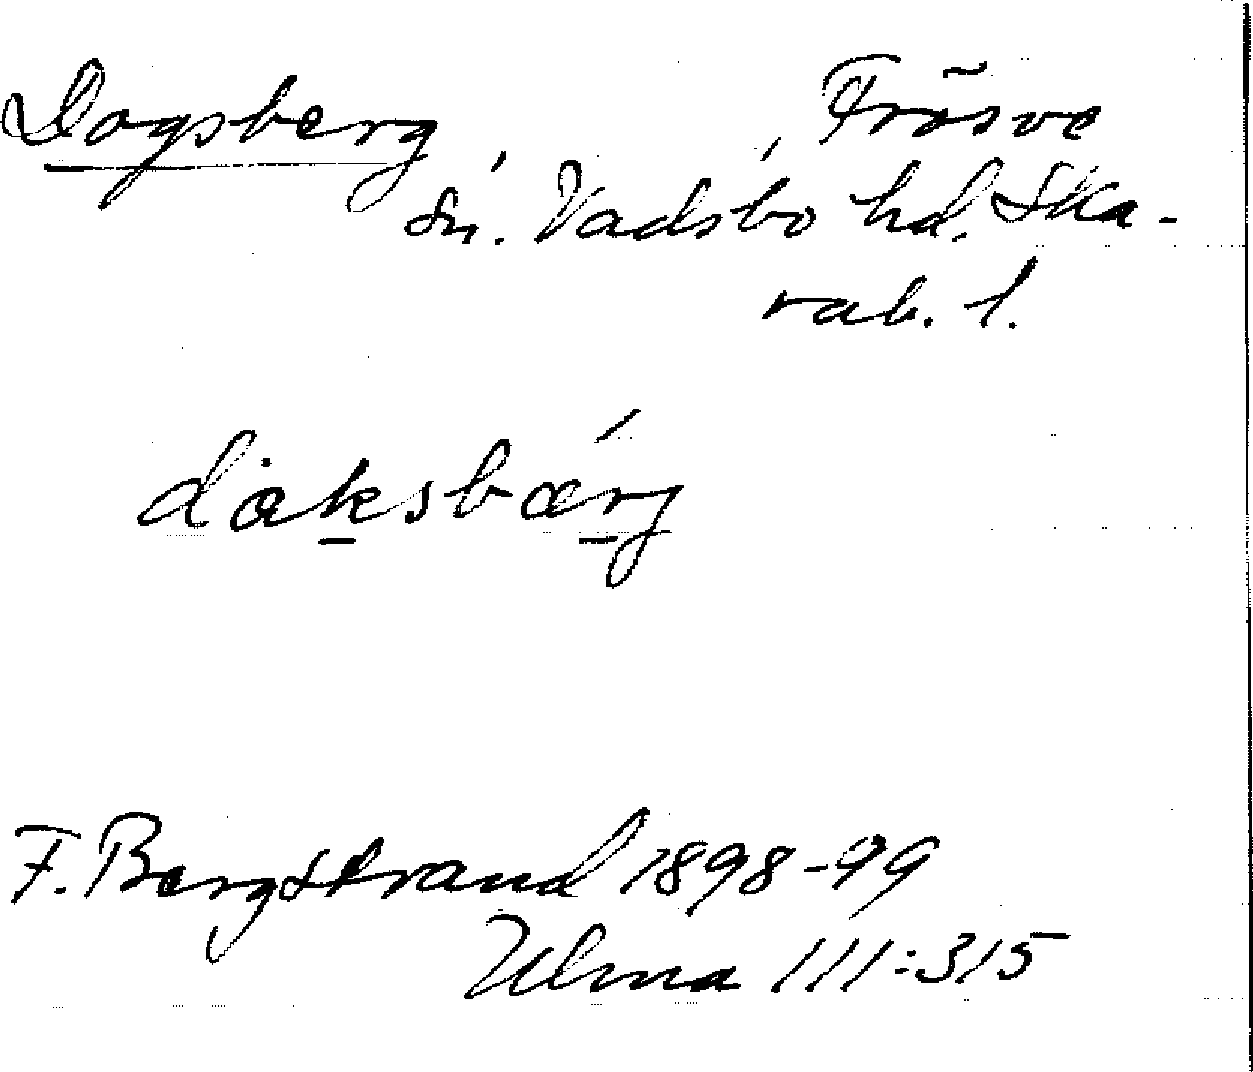 Dagsberg, Frösve
sn. Vadsbo hd. Ska-
rab. l.
dáksbærj
F. Bergstrand 1898-99
Ulma 111:315